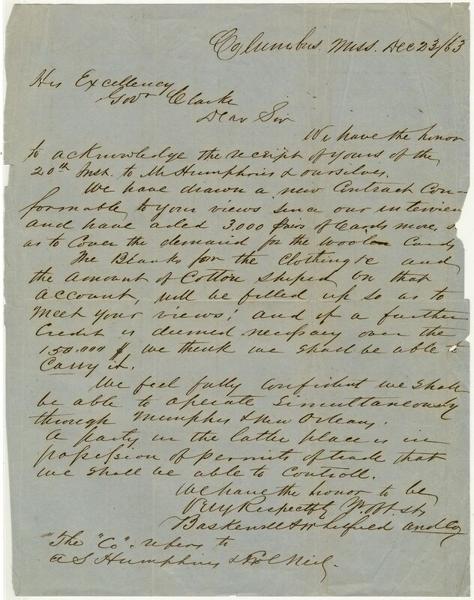 Columbus Miss. Dec 23/63
His Excellency
Govr Clarke
Dear Sir
We have the honor
to acknowledge the receipt of yours of the
20th Inst. to Mr Humphries & ourselves.
We have drawn a new Contract Con-
formable to your views since our interview
and have aded 3.000 pairs of Cards more, so
as to Cover the demand for the woolen Cards
The Blanks for the Clothing &c and
the amount of Cotton shiped on that
account, will be filled up so as to
meet your views; and if a further
Credit is deemed necessary over the
150.000 $ we think we shall be able to
Carry it.
We feel fully confident we shall
be able to operate Simultaneously
through Memphis & New Orleans.
A party in the latter place is in
possession of permits of trade that
we shall be able to Controll.
We have the honor to be
Very Respectfly Yr Obt. St.
Baskerville & Whitfield and Co
The "Co" refers to
A S Humphries &